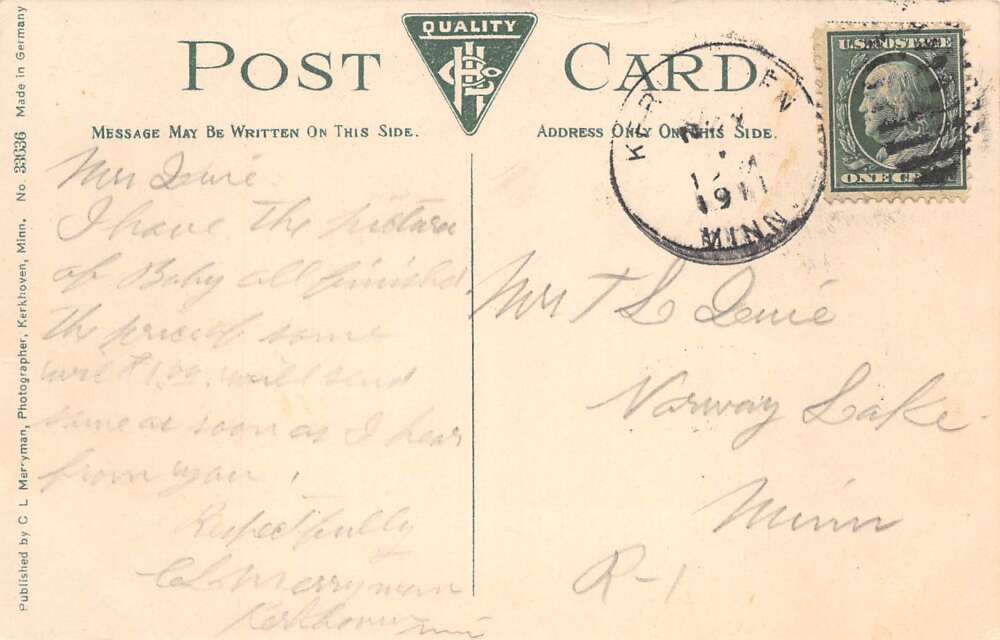 QUALITY
POST CARD
MESSAGE MAY BE WRITTEN ON THIS SIDE.
ADDRESS ONLY ON THIS SIDE.
U.S. POSTAGE
ONE CENT
MINN
1911
Mrs
I have the picture
of Baby all finished
the price of same
$1.00. will send
same as soon as I hear
from you.
Respectfully
C L Merryman
Kerkhoven
Mrs T L
Norway Lake
Minn
R-1
Published by C L Merryman, Photographer, Kerkhoven, Minn. No. 33636 Made in Germany